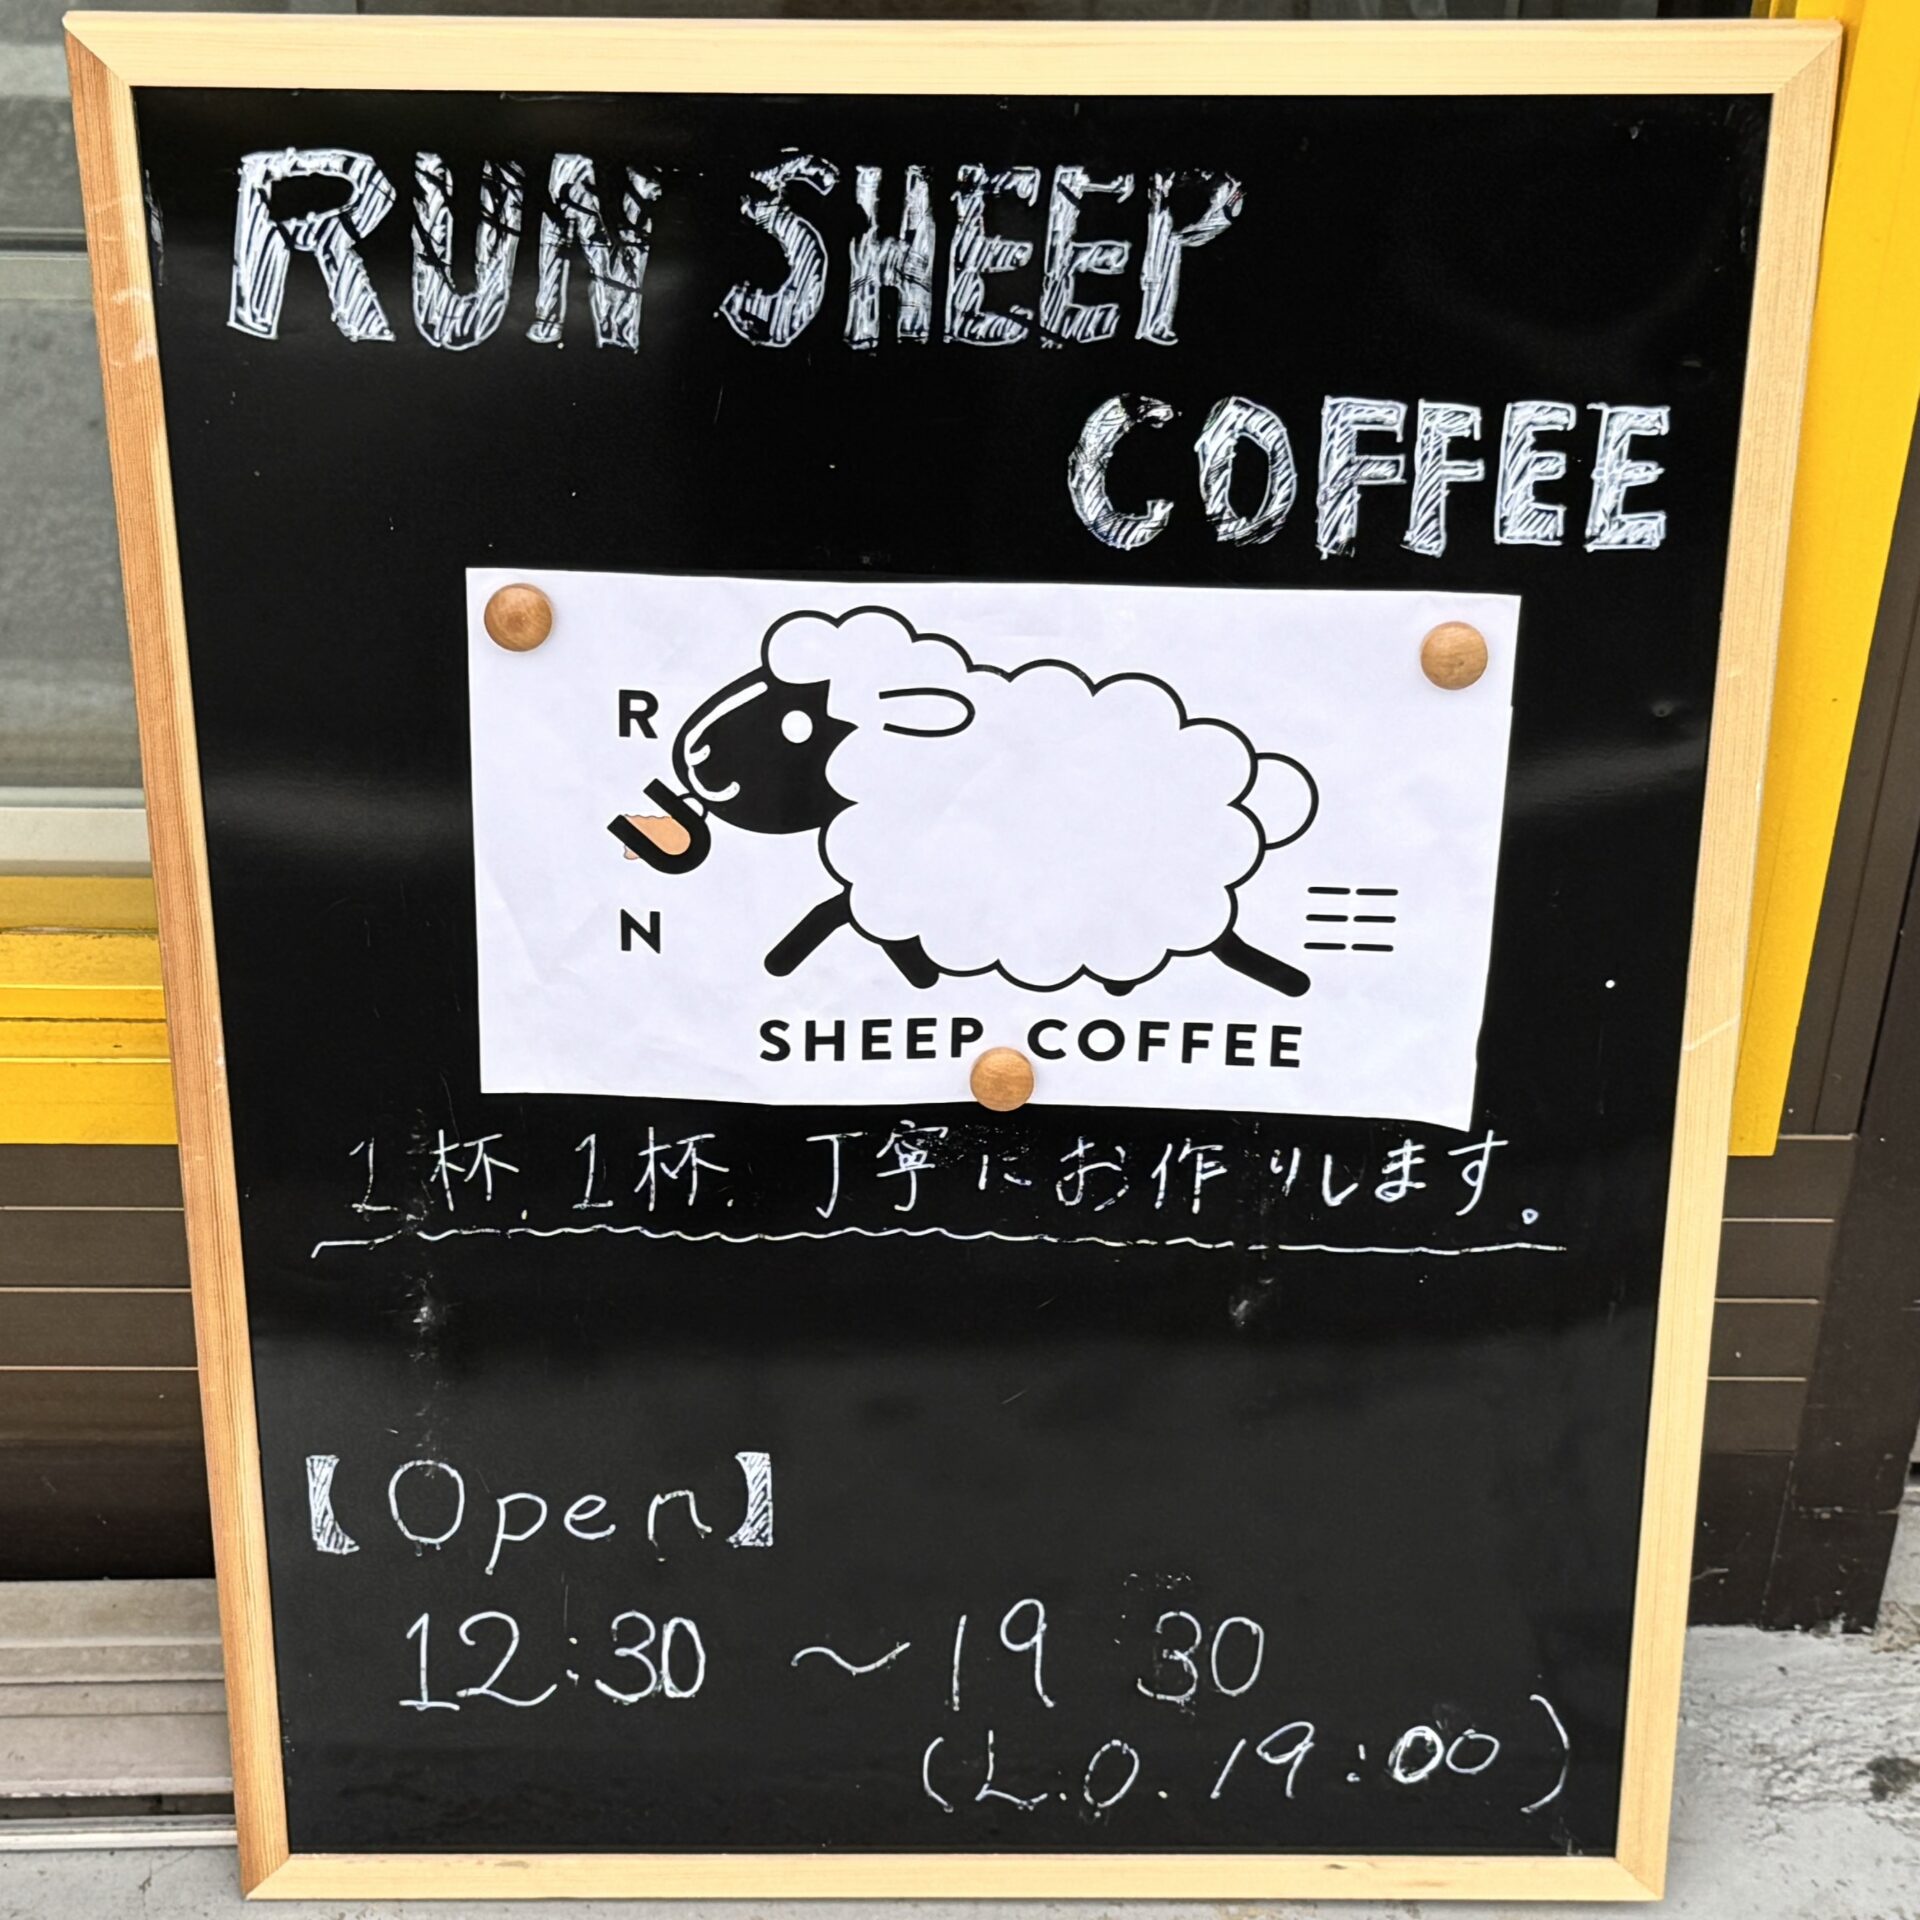 RUN SHEEP
COFFEE
RUN
SHEEP COFFEE
1杯、1杯、丁寧にお作りします。
【Open】
12:30 〜 19 30
(L.O. 19:00)